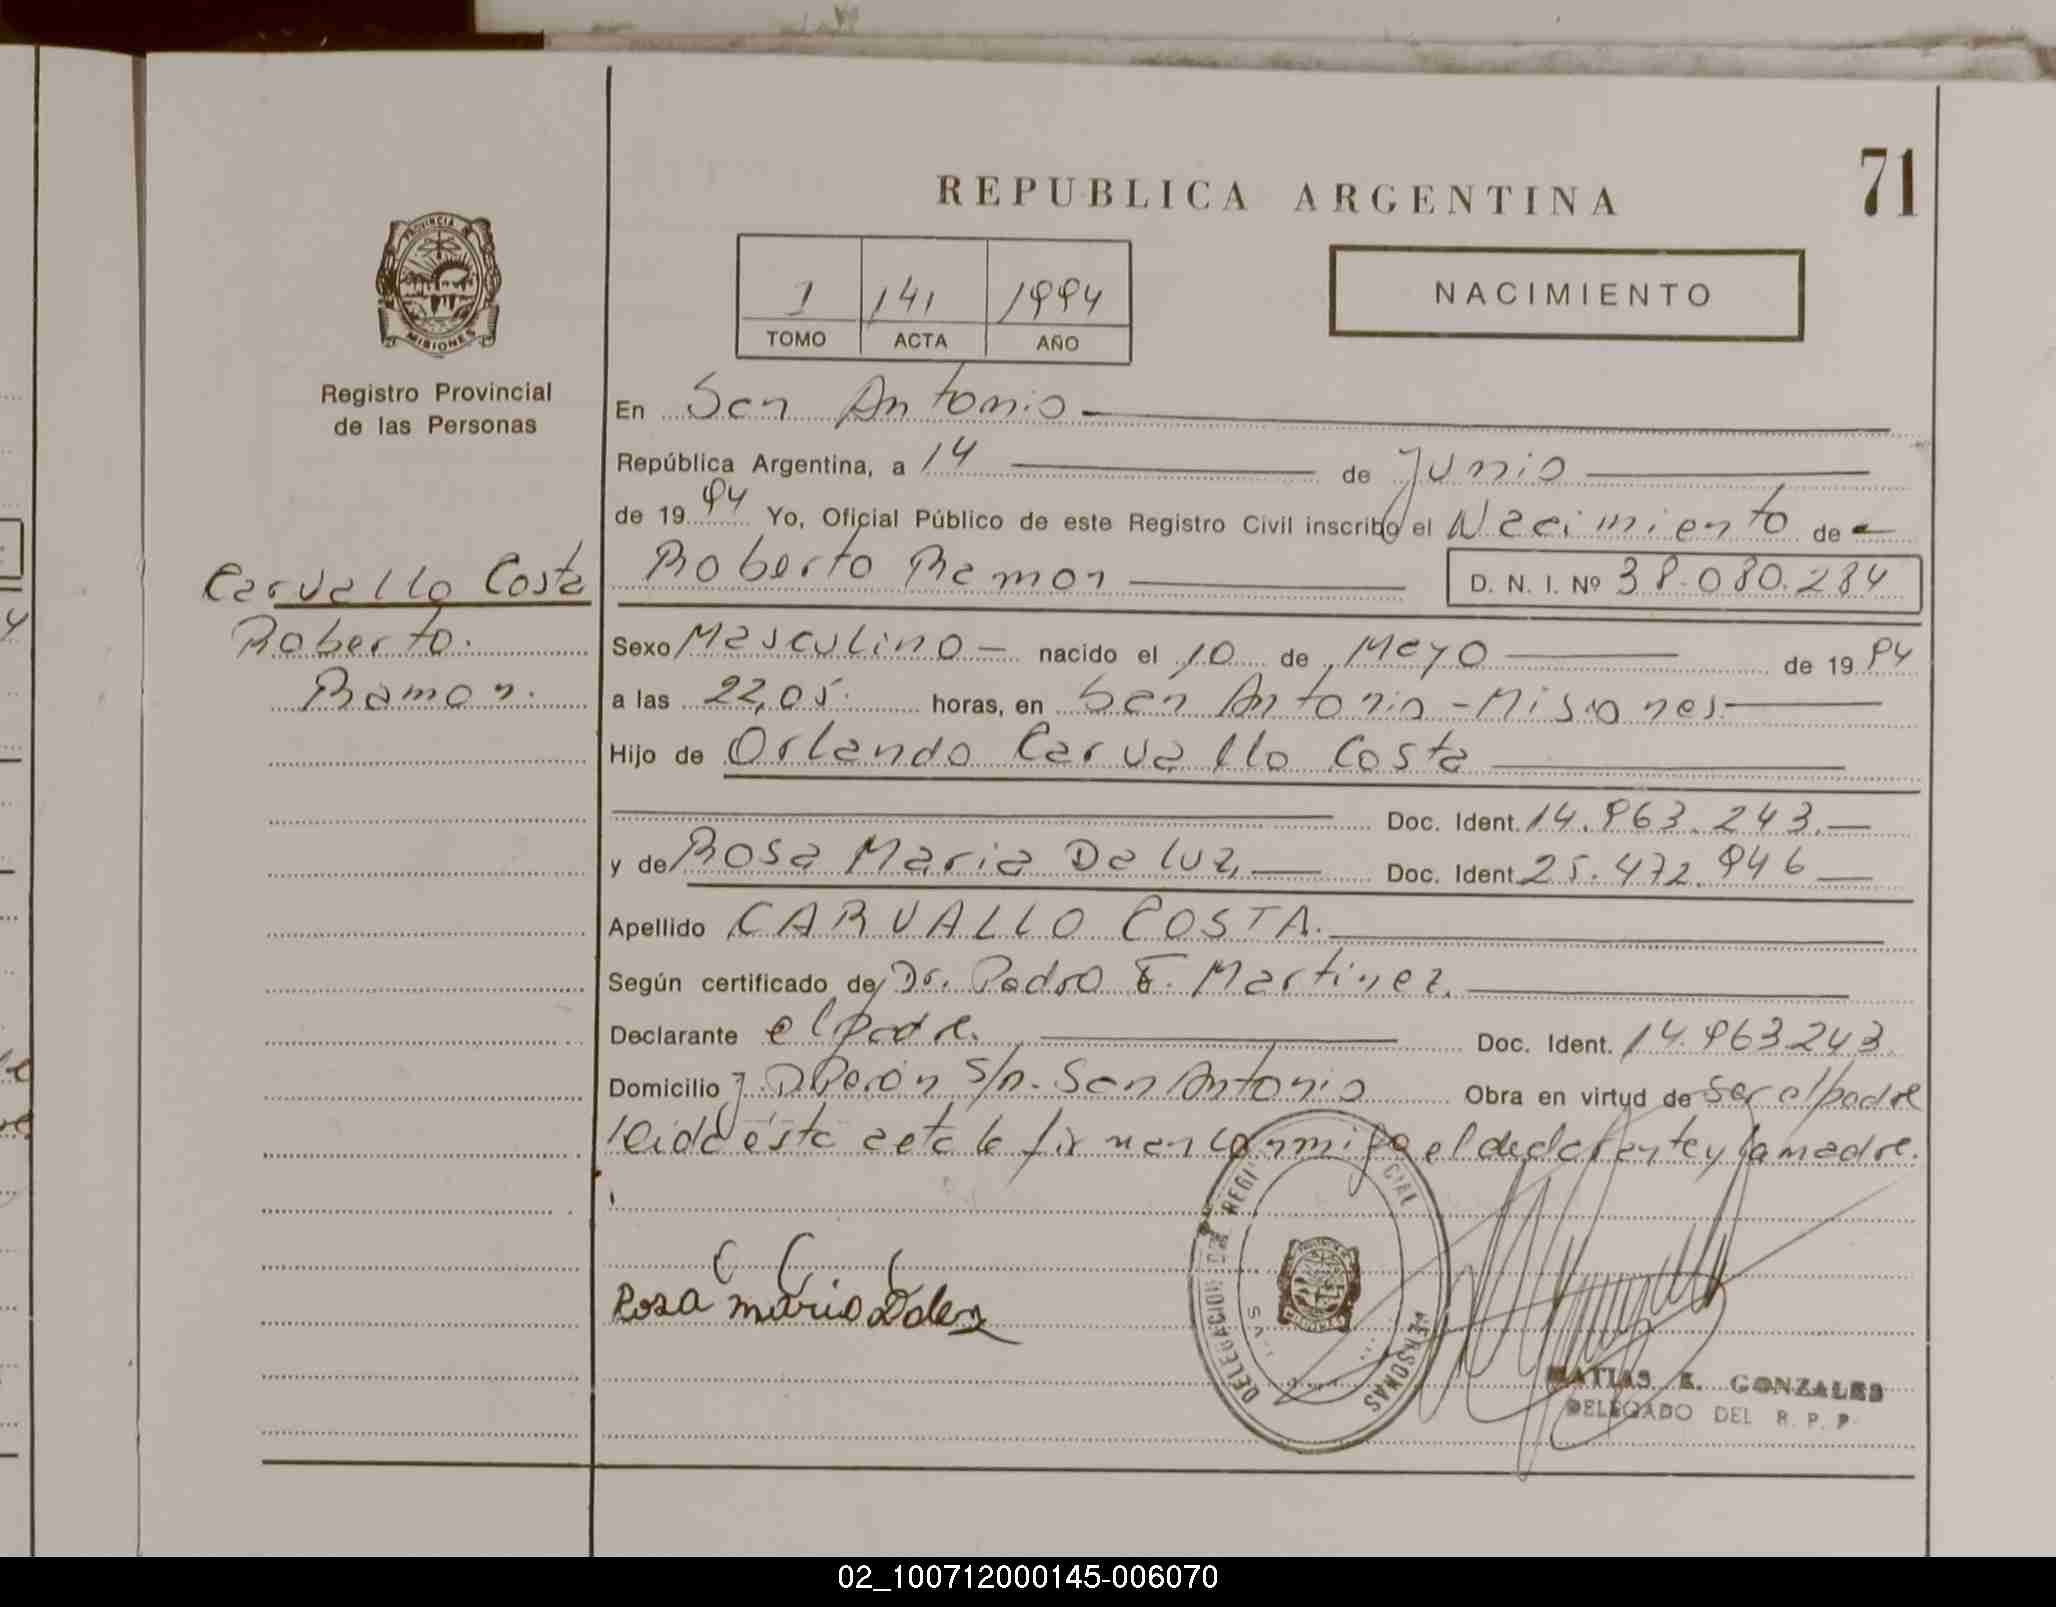 71
REPUBLICA ARGENTINA
PROVINCIA DE
MISIONES
Registro Provincial
de las Personas
1 141 1994
TOMO ACTA AÑO
NACIMIENTO
En San Antonio
República Argentina, a 14 de Junio
de 1994 Yo, Oficial Público de este Registro Civil inscribo el Nacimiento de
Roberto Ramon D. N. I. Nº 38.080.284
Carvallo Costa
Roberto
Ramon.
Sexo Masculino nacido el 10 de Mayo de 1994
a las 22,05. horas, en San Antonio - Misiones
Hijo de Orlando Carvallo Costa
Doc. Ident. 14.963.243.
y de Rosa Maria Da Luz, Doc. Ident. 25.472.946
Apellido CARVALLO COSTA.
Según certificado de Dr. Pedro E. Martinez.
Declarante el padre. Doc. Ident. 14.963243.
Domicilio J. D Perón s/n. San Antonio Obra en virtud de ser el padre
leida ésta acta la firman conmigo el declarante y la madre.
Rosa maria
DELEGACION DEL REGI CIAL PERSONAS
MATIAS E. GONZALES
DELEGADO DEL R. P. P.
02_100712000145-006070